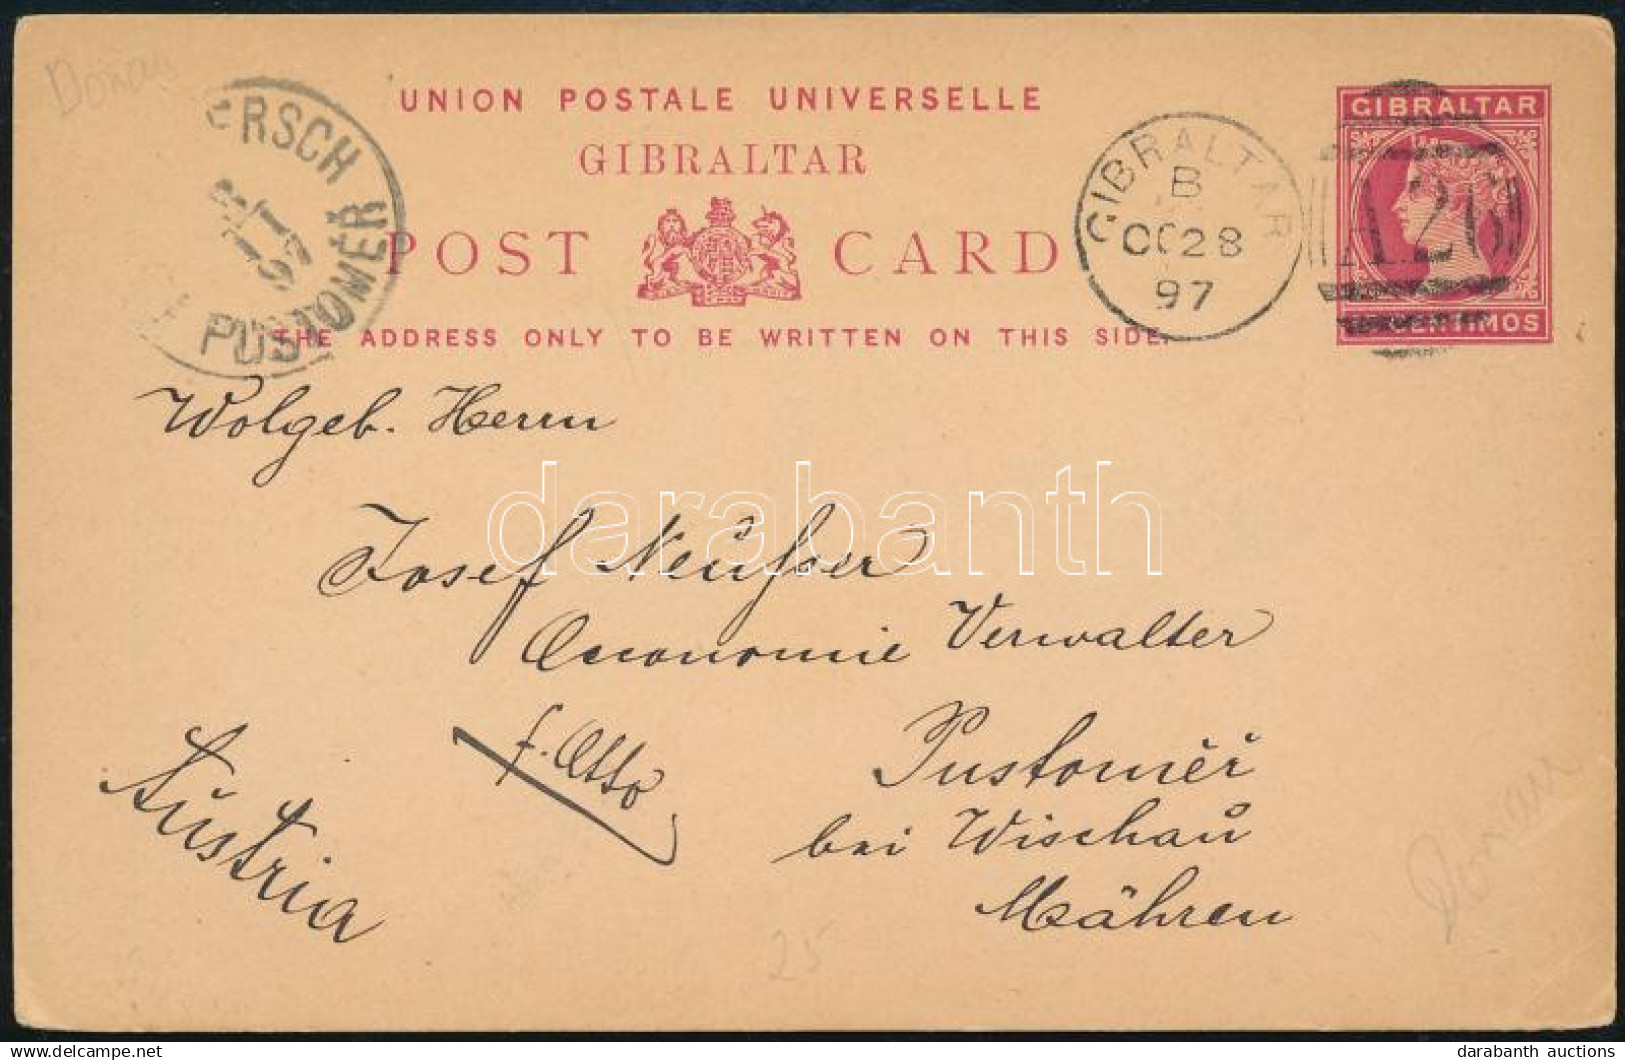 Donau
UNION POSTALE UNIVERSELLE
GIBRALTAR
POST CARD
THE ADDRESS ONLY TO BE WRITTEN ON THIS SIDE.
ERSCH
PUSTOMĚR
PUSTOMER
97
GIBRALTAR
B
OC 28
97
GIBRALTAR
A26
CENTIMOS
Wolgeb. Herrn
Josef Neußer
Oeconomie Verwalter
f. Otto
Pustoměř
bei Wischau
Mähren
Austria
Donau
25
darabanth
darabanth auctions